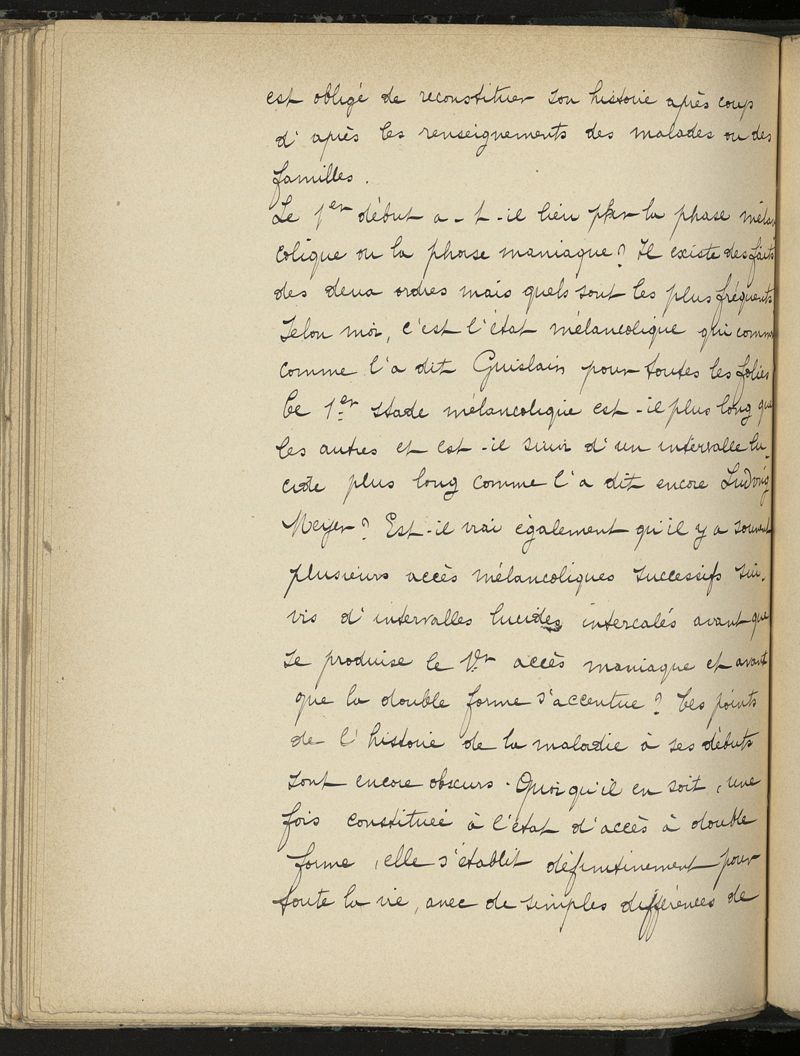 est obligé de reconstituer son histoire après coup
d'après les renseignements des malades ou des
familles.
Le 1er début a-t-il lieu par la phase mélan
colique ou la phase maniaque? Il existe des faits
des deux ordres mais quels sont les plus fréquents
Selon moi, c'est l'état mélancolique qui comm
comme l'a dit Guislain pour toutes les folies
Ce 1er stade mélancolique est-il plus long que
les autres et est-il suivi d'un intervalle lu-
cide plus long comme l'a dit encore Ludwig
Meyer? Est-il vrai également qu'il y a souvent
plusieurs accès mélancoliques successifs sui-
vis d'intervalles lucides intercalés avant que
se produise le 1er accès maniaque et avant
que la double forme s'accentue? Ces points
de l'histoire de la maladie à ses débuts
sont encore obscurs. Quoi qu'il en soit, une
fois constituée à l'état d'accès à double
forme, elle s'établit définitivement pour
toute la vie, avec de simples différences de